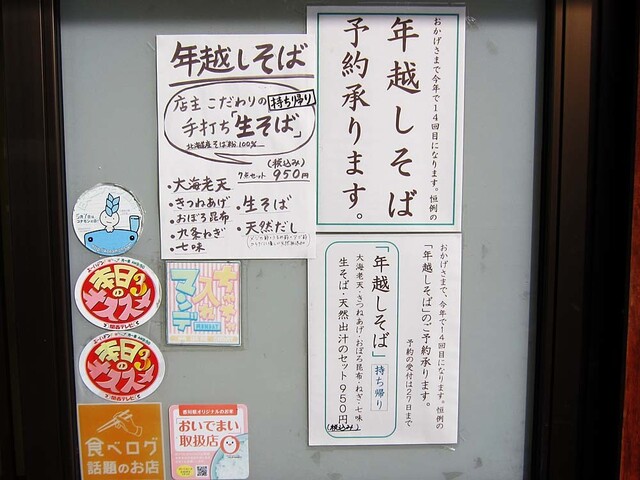 年越しそば
店主こだわりの持ち帰り
手打ち「生そば」
北海道産そば粉100%
(税込み)
7点セット 950円
・大海老天
・きつねあげ
・おぼろ昆布
・九条ねぎ
・七味
・生そば
・天然だし
おかげさまで今年で14回目になります。恒例の
年越しそば
予約承ります。
おかげさまで、今年で14回目になります。恒例の
「年越しそば」のご予約承ります。
予約の受付は27日まで
「年越しそば」持ち帰り
大海老天・きつねあげ・おぼろ昆布・ねぎ・七味
生そば・天然出汁のセット950円
(税込み)
本日の
オススメ3
関西テレビ
本日の
オススメ3
関西テレビ
食べログ
話題のお店
香川県オリジナルのお米
おいでまい
取扱店